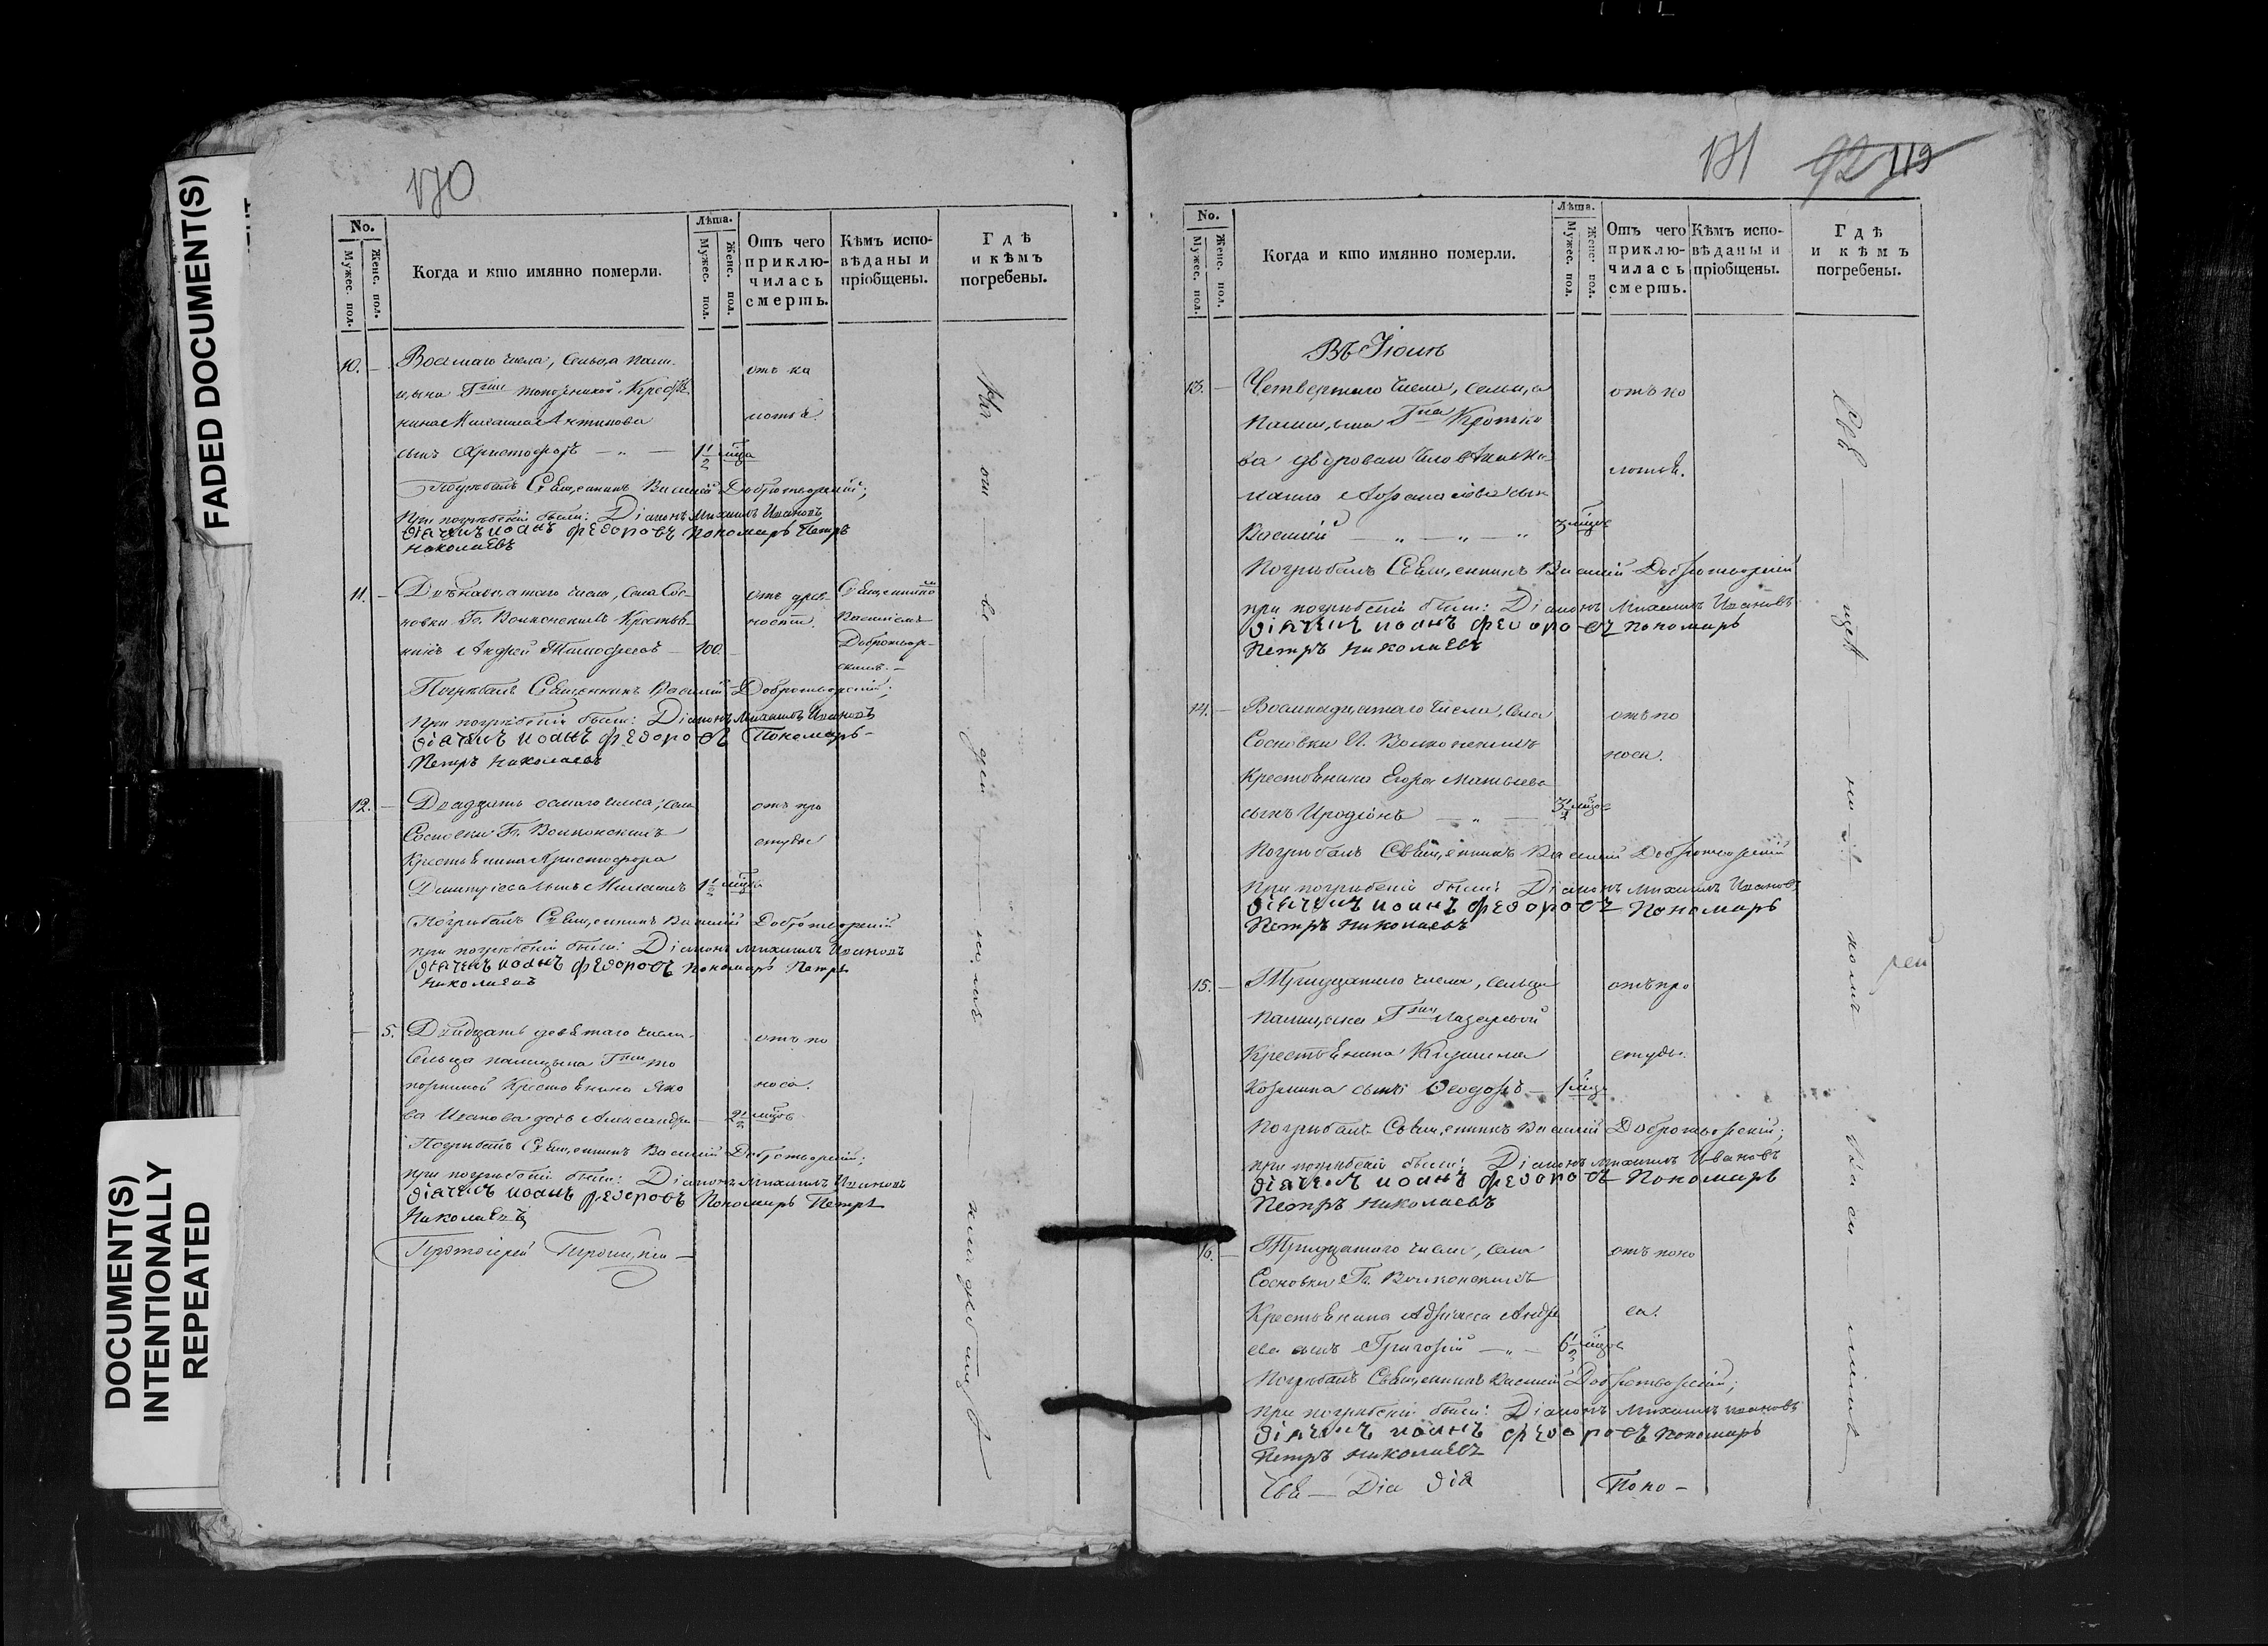 FADED DOCUMENT(S)
DOCUMENT(S)
INTENTIONALLY
REPEATED
170
No.
Мужес. пол.
Женс. пол.
Когда и кто имянно померли.
Лѣта.
Мужес. пол.
Женс. пол.
Отъ чего приклю-
чилась смерть.
Кѣмъ испо-
вѣданы и
пріобщены.
Гдѣ
и кѣмъ
погребены.
10. — Восмаго числа, Сельца Пали-
цына Крестья-
нина Михаила Антипова
сынъ Христофоръ — „ — 1 1/2 мѣца
отъ ко
лотья.
Погребалъ Священникъ Василій Добротворскій;
При погребеніи были: Діаконъ Михаилъ Ивановъ
діачекъ иоанъ федоровъ Пономарь Петръ
Николаевъ
11. — числа, Села Сос-
новки Гг. Волконскихъ Кресть-
нинъ Андрей Тимофеевъ — 100.
отъ древ-
ности.
Священнико
Василіемъ
Добротвор-
скимъ. —
Погребалъ Священникъ Василій Добротворскій;
При погребеніи были: Діаконъ Михаилъ Ивановъ
діачекъ иоанъ федоровъ Пономарь —
Петръ Николаевъ
12. — Двадцать осмаго числа, Села
Сосновки Гг. Волконскихъ
Крестьянина Христофора
Димитріева сынъ Михаилъ 1 1/2 мѣца
отъ про
студы
Погребалъ Священникъ Василій Добротворскій
при погребеніи были: Діаконъ Михаилъ Ивановъ
діачекъ иоанъ федоровъ пономарь Петръ
Николаевъ
— 5. Двадцать девятаго числа
Сельца палицына
Крестьянина Яко
ва Иванова дочь Александра — 2 1/2 мѣцовъ
отъ по
носа.
Погребалъ Священникъ Василій Добротворскій;
при погребеніи были: Діаконъ Михаилъ Ивановъ
діачекъ иоанъ федоровъ Пономарь Петръ
Николаевъ
Протоіерей
На — ономъ — кладбищѣ
171 92 119
No.
Мужес. пол.
Женс. пол.
Когда и кто имянно померли.
Лѣта.
Мужес. пол.
Женс. пол.
Отъ чего приклю-
чилась смерть.
Кѣмъ испо-
вѣданы и
пріобщены.
Гдѣ
и кѣмъ
погребены.
Въ Іюнѣ
13. — Четвертаго числа, Сельца
Палицына Г-на Кротко
ва двороваго
сынъ
Василій — „ — „ — „ 3 мѣцовъ
отъ ко
лотья.
Погребалъ Священникъ Василій Добротворскій
при погребеніи были: Діаконъ Михаилъ Ивановъ
діачекъ иоанъ федоровъ пономарь
Петръ николаевъ
14. — Восмнадцатаго числа, Села
Сосновки Волконскихъ
Крестьянина Егора Матвеева
сынъ Иродіонъ — „ — 3 1/2 мѣцовъ
отъ по
носа.
Погребалъ Священникъ Василій Добротворскій
при погребеніи были: Діаконъ Михаилъ Ивановъ
діачекъ иоанъ федоровъ Пономарь
Петръ николаевъ
15. — Тридцатаго числа, сельца
Палицына Г-жи Лазаревой
Крестьянина
Козмина сынъ Феодоръ — 1 мѣца
отъ про
студы.
Погребалъ Священникъ Василій Добротворскій;
при погребеніи были: Діаконъ Михаилъ Ивановъ
діачекъ иоанъ федоровъ Пономарь
Петръ николаевъ
16. — Тридцатаго числа, Села
Сосновки Гг. Волконскихъ
Крестьянина Андре
ева сынъ Григорій — „ — 6 1/2 мѣцовъ
отъ поно
са.
Погребалъ Священникъ Василій Добротворскій;
при погребеніи были: Діаконъ Михаилъ Ивановъ
діачекъ иоанъ федоровъ пономарь
Петръ николаевъ
Свя — Діа діа Поно —